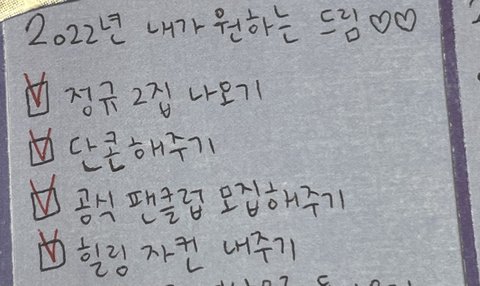 2022년 내가 원하는 드림♡♡
정규 2집 나오기
단콘해주기
공식 팬클럽 모집해주기
힐링 자컨 내주기